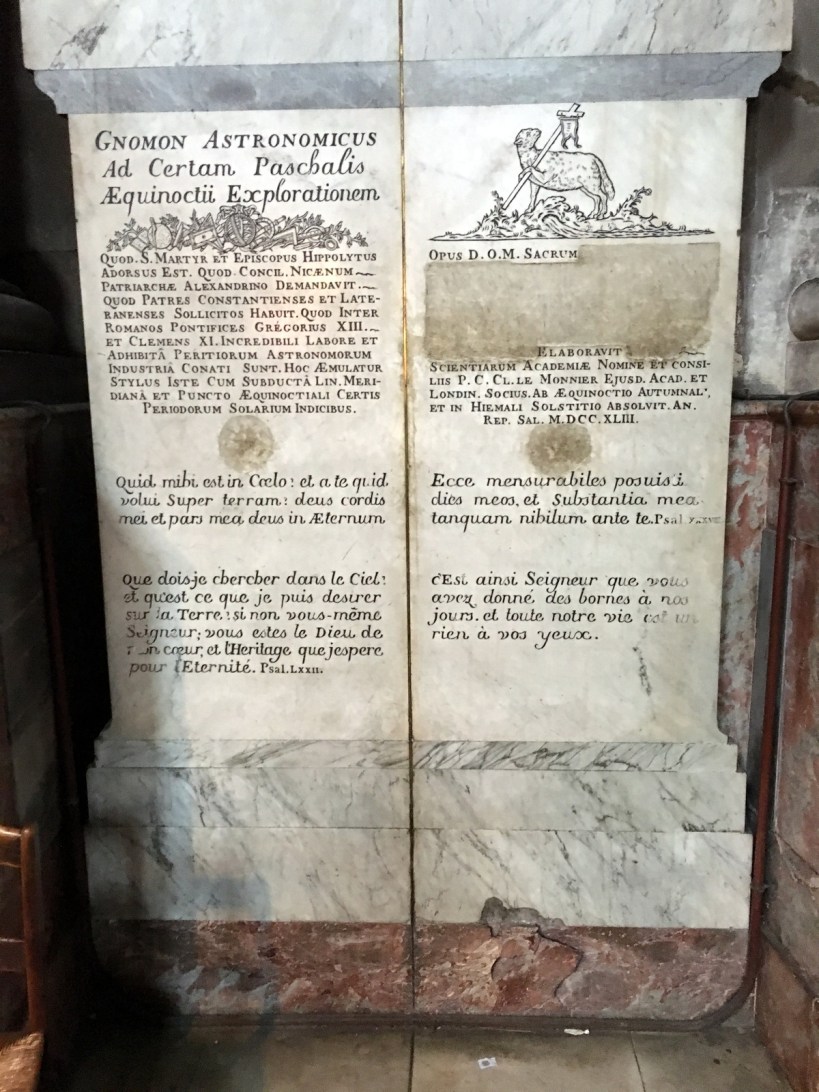 GNOMON ASTRONOMICUS
Ad Certam Paschalis
Æquinoctii Explorationem
QUOD. S. MARTYR ET EPISCOPUS HIPPOLYTUS
ADORSUS EST. QUOD CONCIL. NICÆNUM
PATRIARCHÆ ALEXANDRINO DEMANDAVIT.
QUOD PATRES CONSTANTIENSES ET LATE-
RANENSES SOLLICITOS HABUIT. QUOD INTER
ROMANOS PONTIFICES GREGORIUS XIII.
ET CLEMENS XI. INCREDIBILI LABORE ET
ADHIBITÂ PERITIORUM ASTRONOMORUM
INDUSTRIA CONATI SUNT. HOC ÆMULATUR
STYLUS ISTE CUM SUBDUCTÂ LIN. MERI-
DIANÂ ET PUNCTO ÆQUINOCTIALI CERTIS
PERIODORUM SOLARIUM INDICIBUS.
Quid mihi est in Cœlo: et a te quid
volui Super terram: deus cordis
mei et pars mea deus in Æternum
Que dois-je chercher dans le Ciel:
et qu'est ce que je puis desirer
sur la Terre: si non vous-même
Seigneur; vous estes le Dieu de
cœur, et l'Heritage que j'espere
pour l'Eternité. Psal. LXXII.
OPUS D. O. M. SACRUM
ELABORAVIT
SCIENTIARUM ACADEMIÆ NOMINE ET CONSI-
LIIS P. C. CL. LE MONNIER EJUSD. ACAD. ET
LONDIN. SOCIUS. AB ÆQUINOCTIO AUTUMNAL',
ET IN HIEMALI SOLSTITIO ABSOLVIT. AN.
REP. SAL. M.DCC.XLIII.
Ecce mensurabiles posuisti
dies meos, et Substantia mea
tanquam nihilum ante te. Psal
c'Est ainsi Seigneur que vous
avez donné des bornes à nos
jours. et toute notre vie est un
rien à vos yeux.